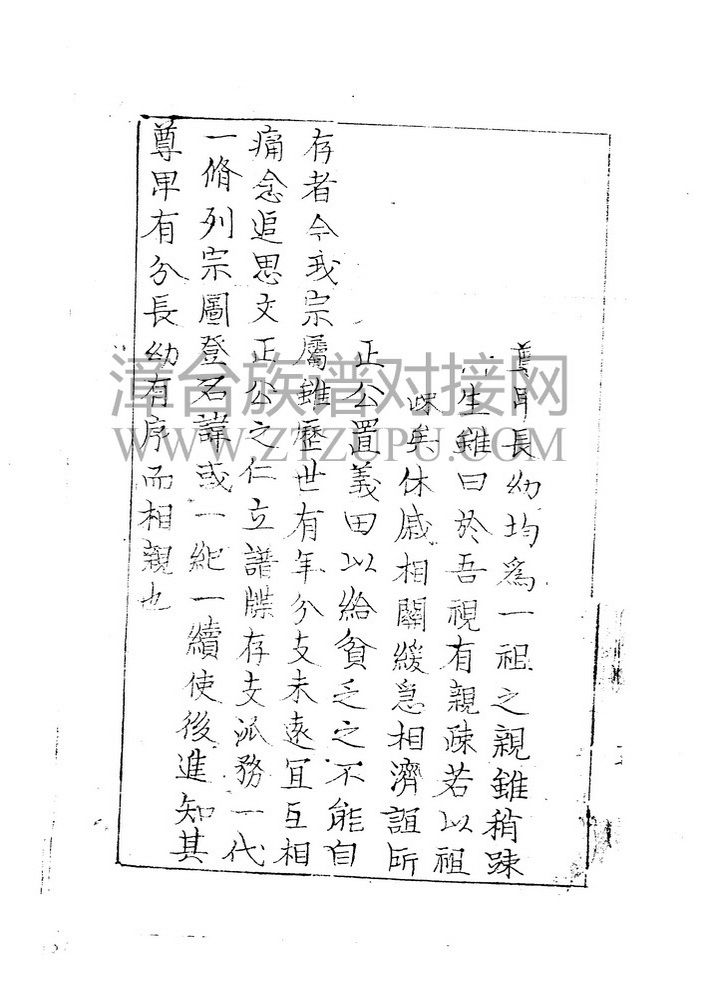 尊卑長幼均為一祖之親雖稍踈
生雖曰於吾視有親疎若以祖
疎矣休戚相關緩急相濟誼所
正公置義田以給貧乏之不能自
存者今我宗屬雖歷世有年分支未遠宜互相
痛念追思文正公之仁立譜牒存支派務一代
一脩列宗圖登名諱或一紀一續使後進知其
尊卑有分長幼有序而相親也
漳台族谱对接网
WWW.ZTZUPU.COM